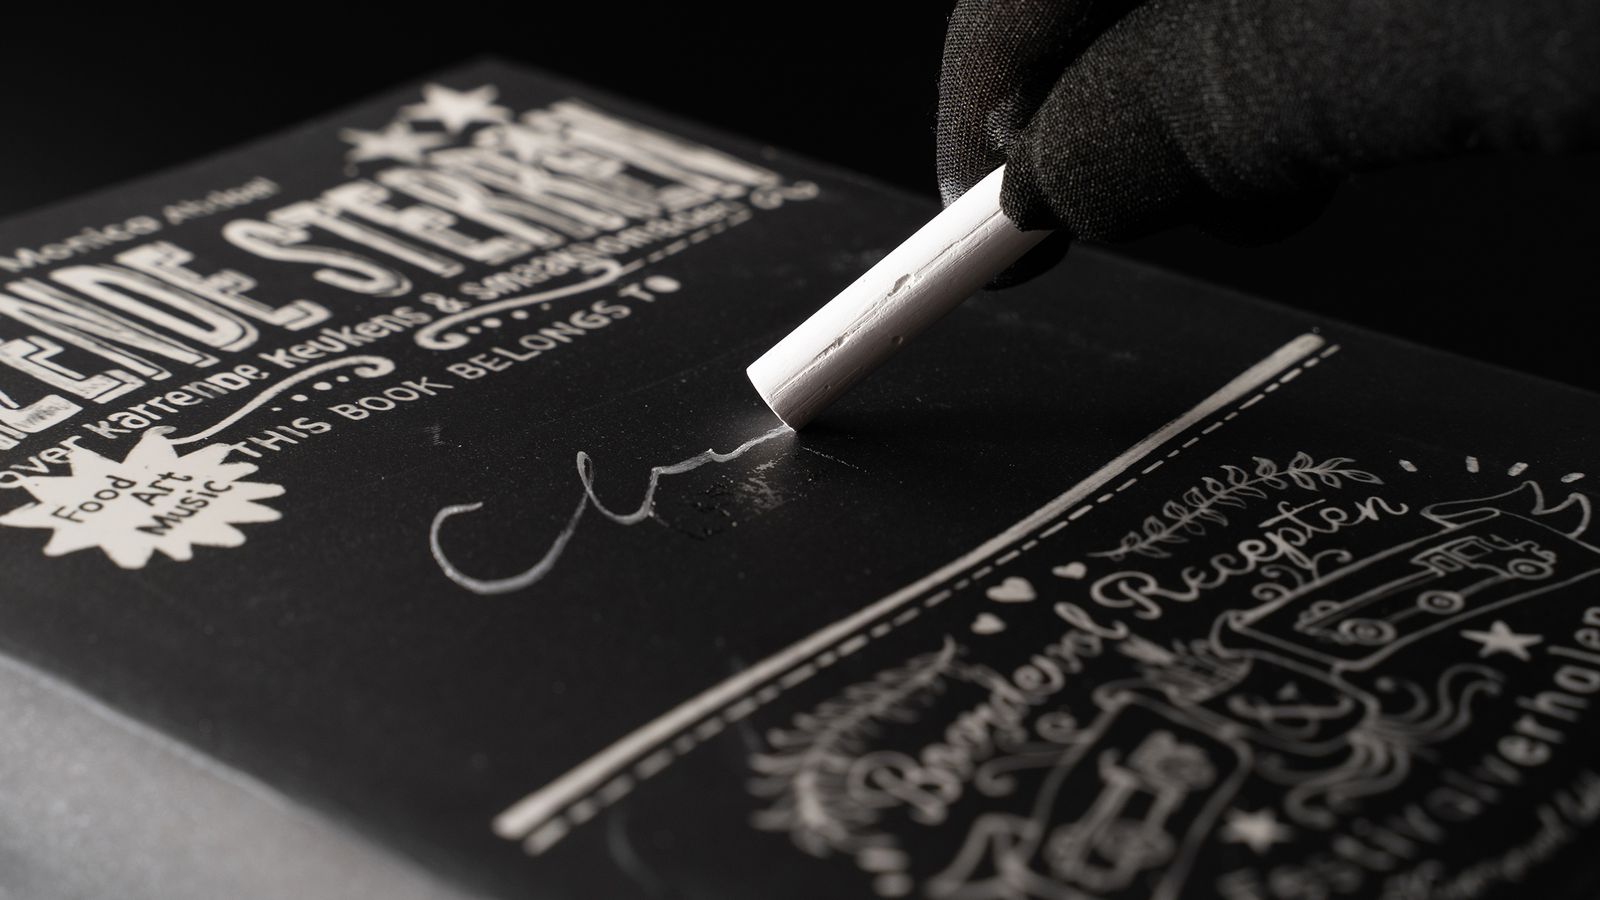 Monica
ZENDE STERREN
over karrende keukens & smaaknomaden
THIS BOOK BELONGS TO
Food
Art
Music
Boordevol Recepten
&
Festivalverhalen